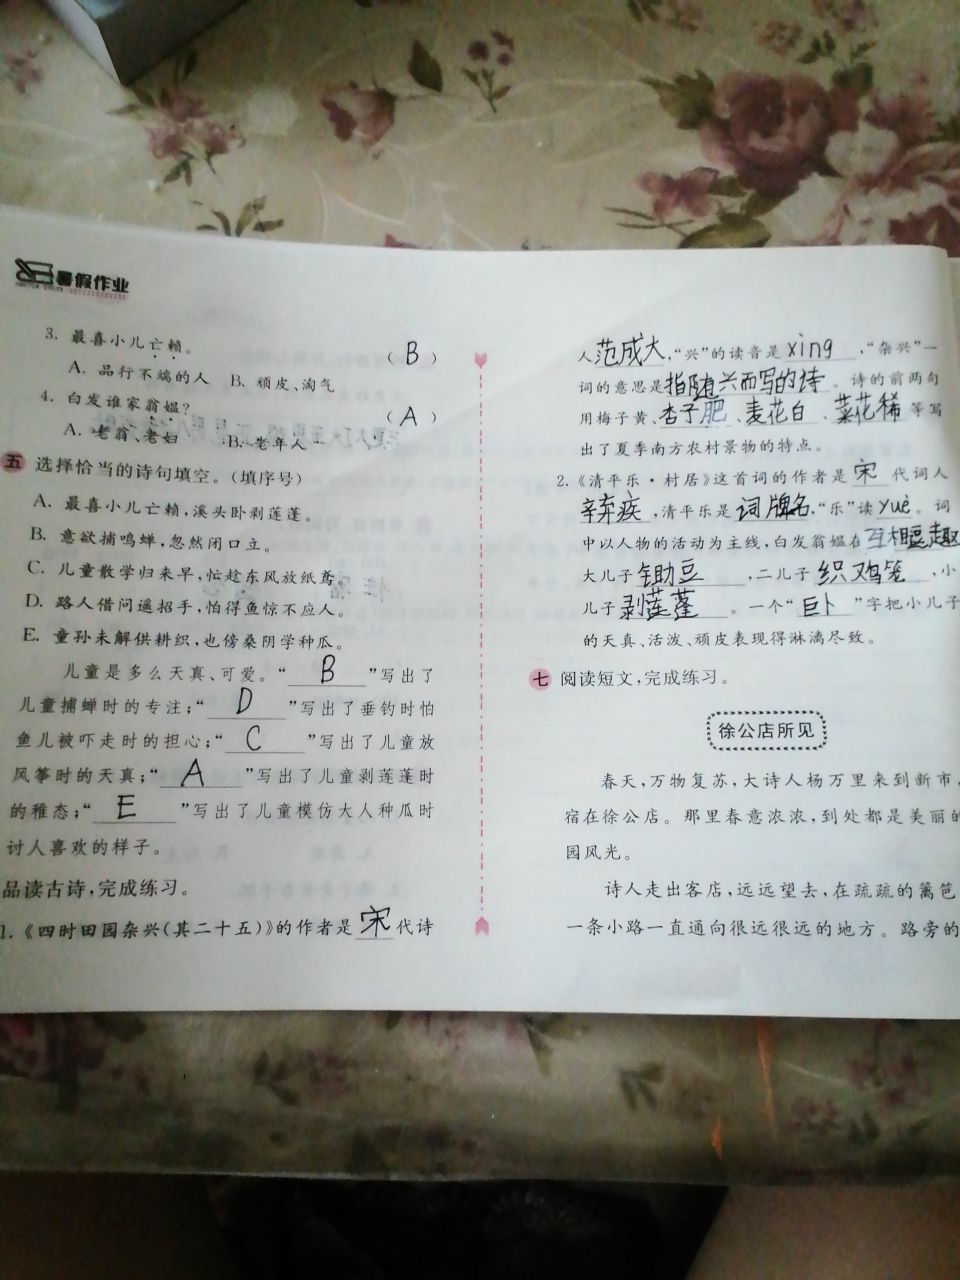 暑假作业
3. 最喜小儿亡赖。 ( B )
A. 品行不端的人 B. 顽皮、淘气
4. 白发谁家翁媪? ( A )
A. 老翁、老妇 B. 老年人
五 选择恰当的诗句填空。(填序号)
A. 最喜小儿亡赖,溪头卧剥莲蓬。
B. 意欲捕鸣蝉,忽然闭口立。
C. 儿童散学归来早,忙趁东风放纸鸢。
D. 路人借问遥招手,怕得鱼惊不应人。
E. 童孙未解供耕织,也傍桑阴学种瓜。
儿童是多么天真、可爱。“ B ”写出了
儿童捕蝉时的专注;“ D ”写出了垂钓时怕
鱼儿被吓走时的担心;“ C ”写出了儿童放
风筝时的天真;“ A ”写出了儿童剥莲蓬时
的稚态;“ E ”写出了儿童模仿大人种瓜时
讨人喜欢的样子。
品读古诗,完成练习。
1.《四时田园杂兴(其二十五)》的作者是 宋 代诗
人范成大,“兴”的读音是 xìng ,“杂兴”一
词的意思是指随兴而写的诗。诗的前两句
用梅子黄、杏子肥、麦花白、菜花稀等写
出了夏季南方农村景物的特点。
2.《清平乐·村居》这首词的作者是 宋 代词人
辛弃疾,清平乐是 词牌名,“乐”读 yuè 。词
中以人物的活动为主线,白发翁媪在互相逗趣
大儿子 锄豆 ,二儿子 织鸡笼 ,小
儿子 剥莲蓬 。一个“ 卧 ”字把小儿子
的天真、活泼、顽皮表现得淋漓尽致。
七 阅读短文,完成练习。
徐公店所见
春天,万物复苏,大诗人杨万里来到新市,
宿在徐公店。那里春意浓浓,到处都是美丽的
园风光。
诗人走出客店,远远望去,在疏疏的篱笆
一条小路一直通向很远很远的地方。路旁的